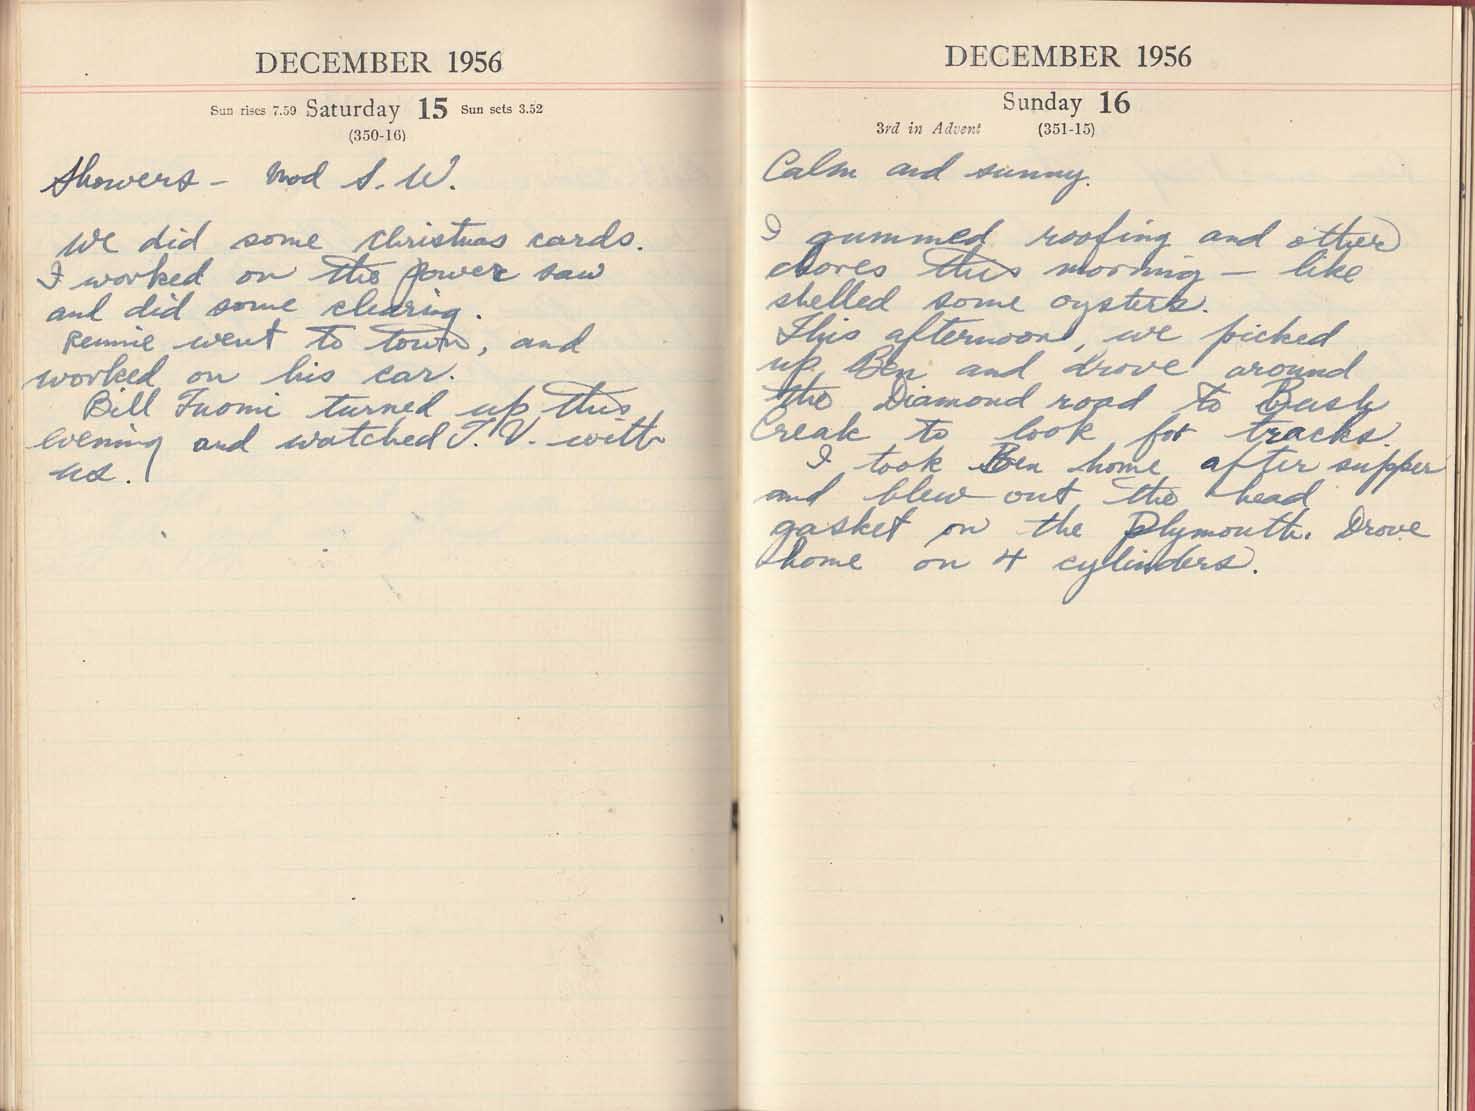 DECEMBER 1956
Sun rises 7.59 Saturday 15 Sun sets 3.52
(350-16)
Showers - Mod S. W.
We did some Christmas cards.
I worked on the power saw
and did some clearing.
Rennie went to town, and
worked on his car.
Bill Tuomi turned up this
evening and watched T. V. with
us.
DECEMBER 1956
Sunday 16
3rd in Advent (351-15)
Calm and sunny.
I gummed roofing and other
chores this morning - like
shelled some oysters.
This afternoon, we picked
up Ben and drove around
the Diamond road to Bush
Creak to look for tracks.
I took Ben home after supper
and blew out the head
gasket on the Plymouth. Drove
home on 4 cylinders.